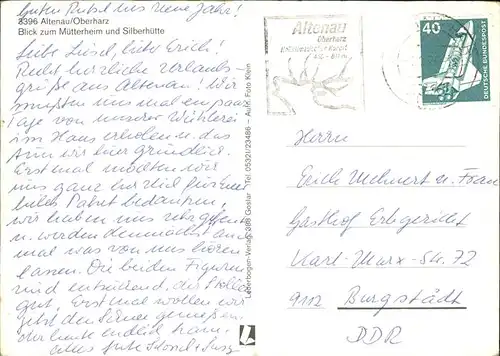 Guten Rutsch ins neue Jahr!
3396 Altenau/Oberharz
Blick zum Mütterheim und Silberhütte
Liebe Liesel, lieber Erich!
Recht herzliche Urlaubs-
grüße aus Altenau! Wir
mußten uns mal ein paar
Tage von unserer Wühlerei
im Haus erholen u. das
tun wir hier gründlich.
Erst mal möchten wir
uns ganz herzlich für Euer
Paket bedanken,
wir haben uns
u. werden demnächst
mal was von uns hören
lassen. Die beiden Figuren
sind entzückend, die Stolle
gut. Erst mal wollen wir
jetzt den genießen,
der heute endlich kam.
Alles Gute
Lederbogen-Verlag 338 Goslar Tel 05321/23486 – Aufn. Foto Klein
Altenau
Oberharz
40
DEUTSCHE BUNDESPOST
Herrn
Erich Mehnert u. Frau
Gasthof Erbgericht
Karl-Marx-Str. 72
9112 Burgstädt
DDR